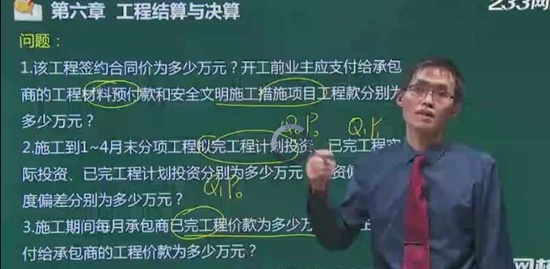 第六章 工程结算与决算
233网
问题：
1.该工程签约合同价为多少万元？开工前业主应支付给承包
商的工程材料预付款和安全文明施工措施项目工程款分别为
多少万元？
Q₀P₀ Q₁P₁
2.施工到1~4月末分项工程拟完工程计划投资、已完工程实
际投资、已完工程计划投资分别为多少万元
度偏差分别为多少万元？
Q₁P₀
3.施工期间每月承包商已完工程价款为多少万
付给承包商的工程价款为多少万元？